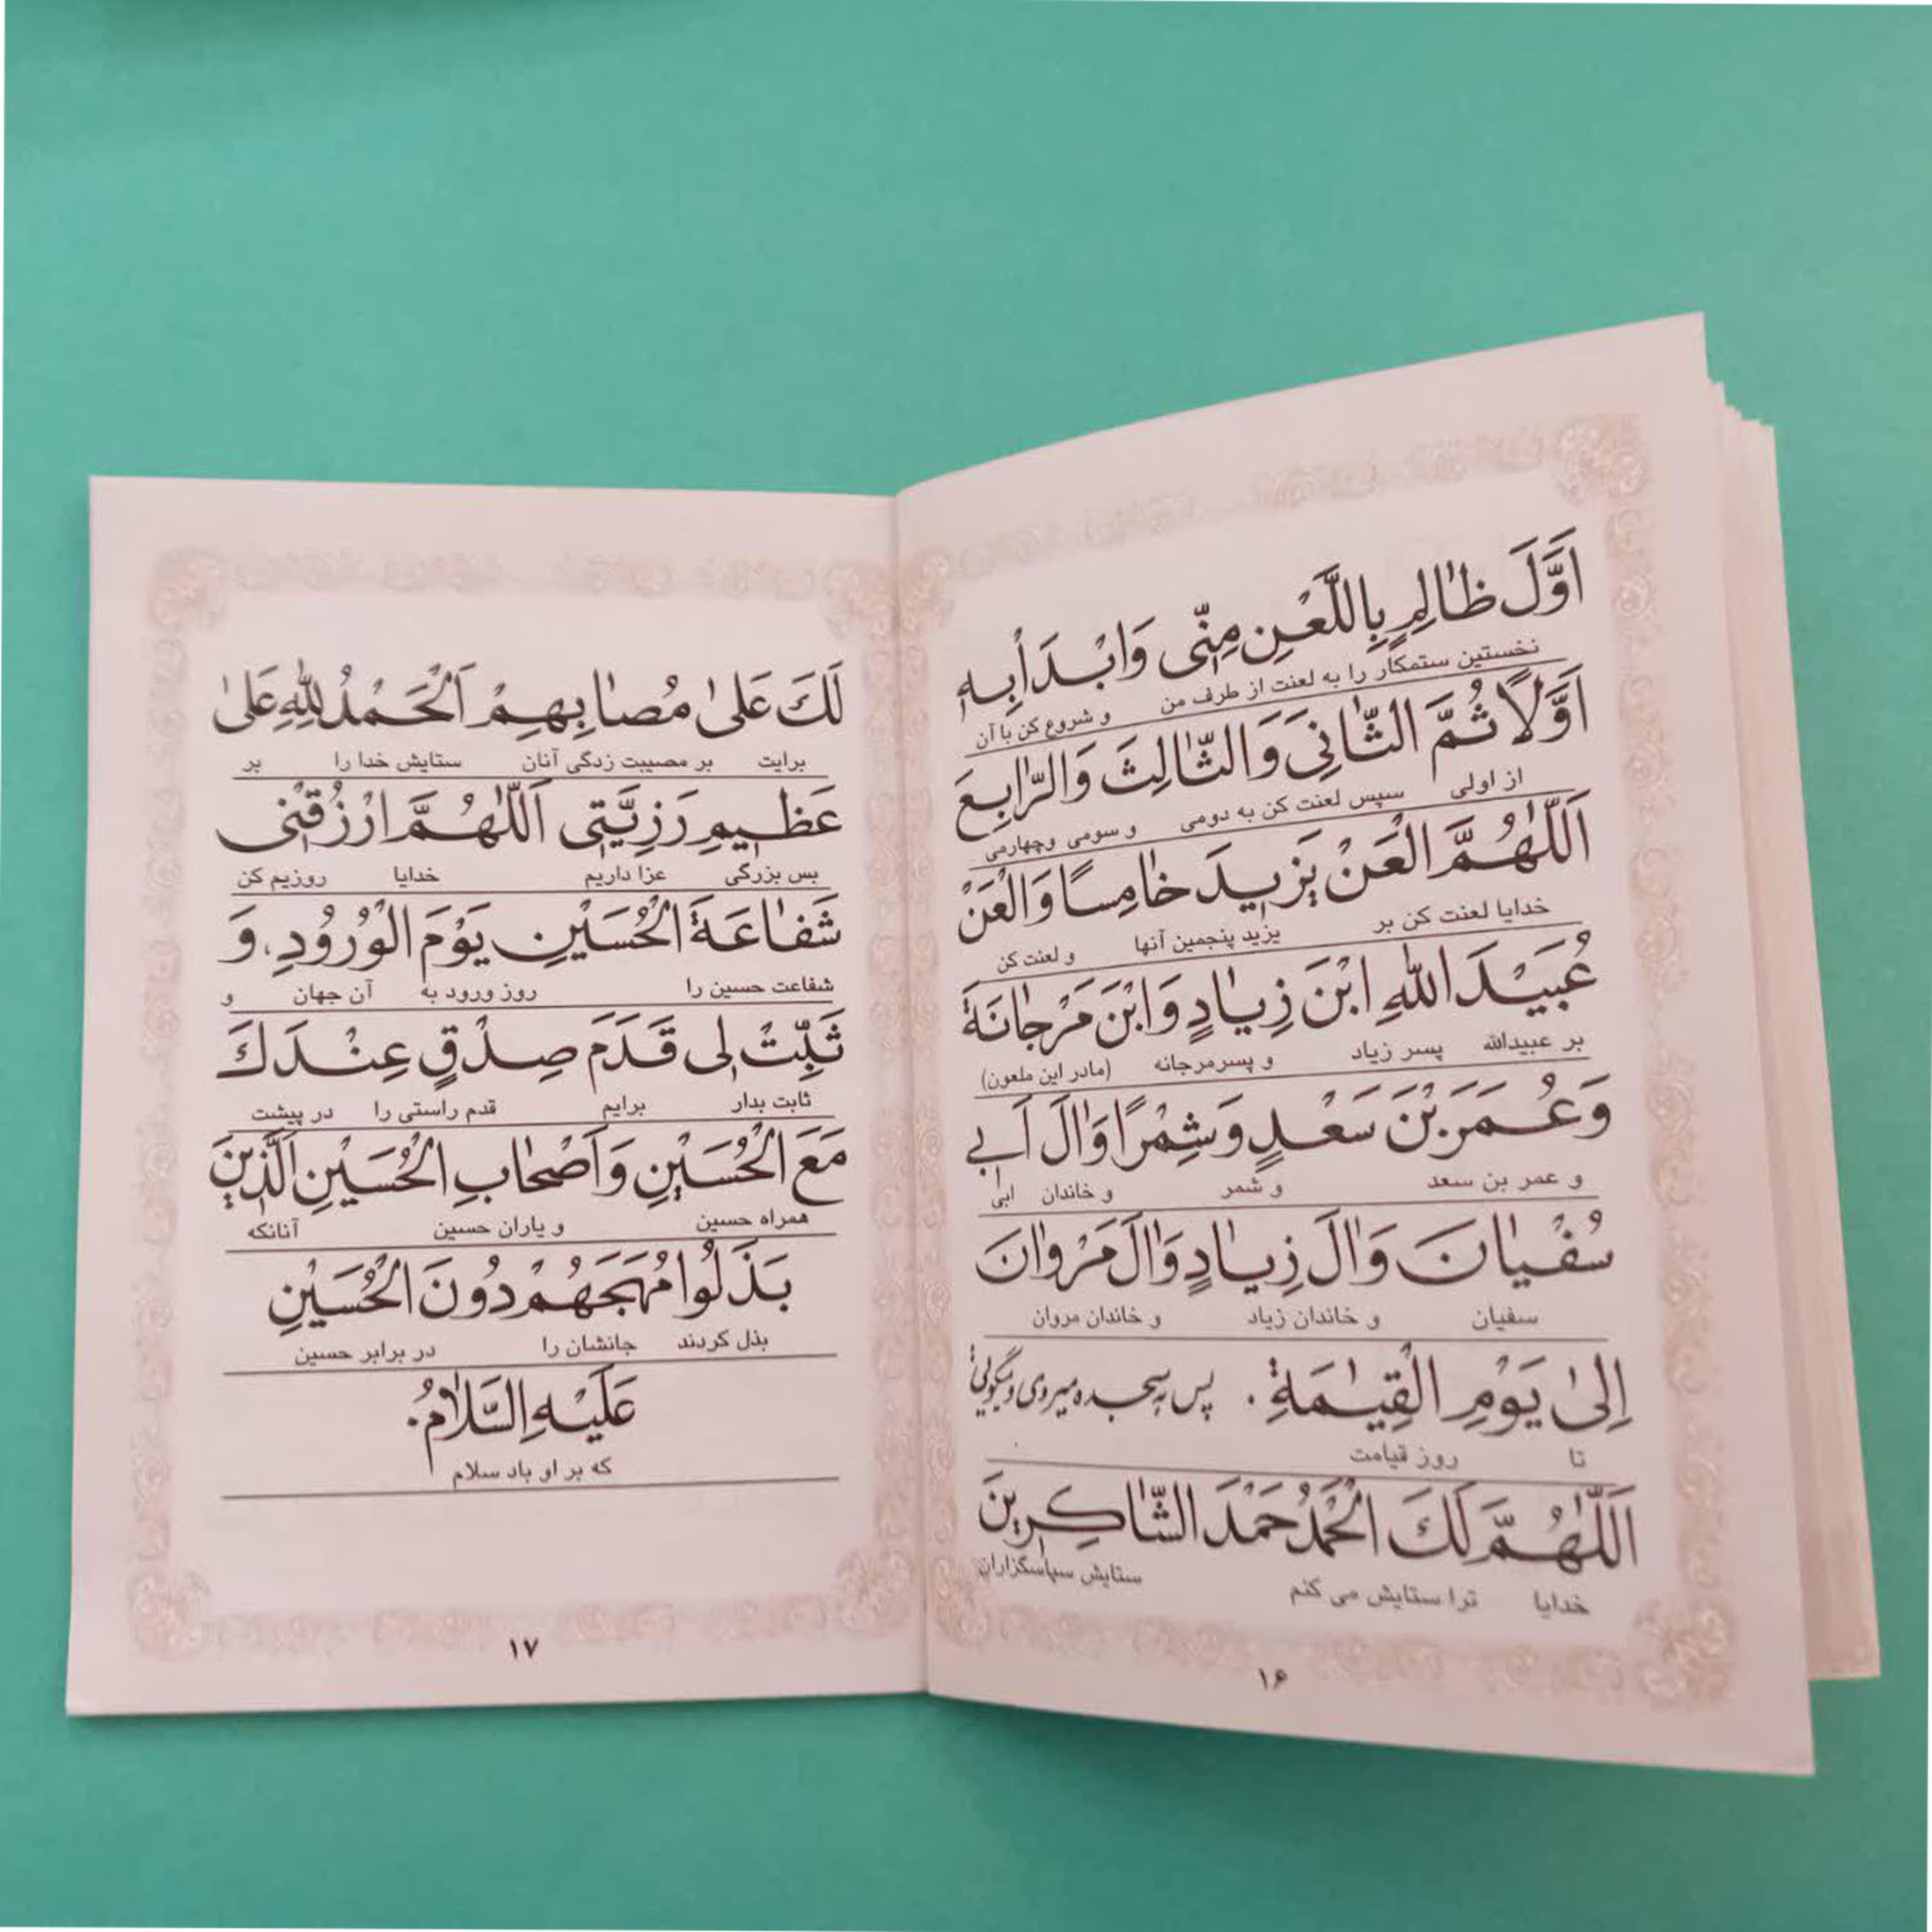 اَوَّلَ ظٰالِمٍ بِاللَّعْنِ مِنّى وَابْدَأْبِهِ
نخستین ستمکار را به لعنت از طرف من و شروع کن با آن
اَوَّلًا ثُمَّ الثّٰانِىَ وَالثّٰالِثَ وَالرّٰابِعَ
از اولی سپس لعنت کن به دومی و سومی وچهارمی
اَللّٰهُمَّ الْعَنْ يَزيدَ خٰامِسًا وَالْعَنْ
خدایا لعنت کن بر یزید پنجمین آنها و لعنت کن
عُبَيْدَاللّٰهِ ابْنَ زِيٰادٍ وَابْنَ مَرْجٰانَةَ
بر عبیدالله پسر زیاد و پسرمرجانه (مادر این ملعون)
وَعُمَرَ بْنَ سَعْدٍ وَشِمْرًا وَاٰلَ اَبى
و عمر بن سعد و شمر و خاندان ابی
سُفْيٰانَ وَاٰلَ زِيٰادٍ وَاٰلَ مَرْوٰانَ
سفیان و خاندان زیاد و خاندان مروان
اِلىٰ يَوْمِ الْقِيٰمَةِ. پس به سجده میروی و میگوئی
تا روز قیامت
اَللّٰهُمَّ لَكَ الْحَمْدُ حَمْدَ الشّٰاكِرينَ
خدایا ترا ستایش می کنم ستایش سپاسگزاران
۱۶
لَكَ عَلىٰ مُصٰابِهِمْ اَلْحَمْدُلِلّٰهِ عَلىٰ
برایت بر مصیبت زدگی آنان ستایش خدا را بر
عَظيمِ رَزِيَّتى اَللّٰهُمَّ ارْزُقْنى
بس بزرگی عزا داریم خدایا روزیم کن
شَفٰاعَةَ الْحُسَيْنِ يَوْمَ الْوُرُودِ، وَ
شفاعت حسین را روز ورود به آن جهان و
ثَبِّتْ لى قَدَمَ صِدْقٍ عِنْدَكَ
ثابت بدار برایم قدم راستی را در پیشت
مَعَ الْحُسَيْنِ وَاَصْحٰابِ الْحُسَيْنِ الَّذينَ
همراه حسین و یاران حسین آنانکه
بَذَلُوا مُهَجَهُمْ دُونَ الْحُسَيْنِ
بذل کردند جانشان را در برابر حسین
عَلَيْهِ السَّلاٰمُ.
که بر او باد سلام
۱۷